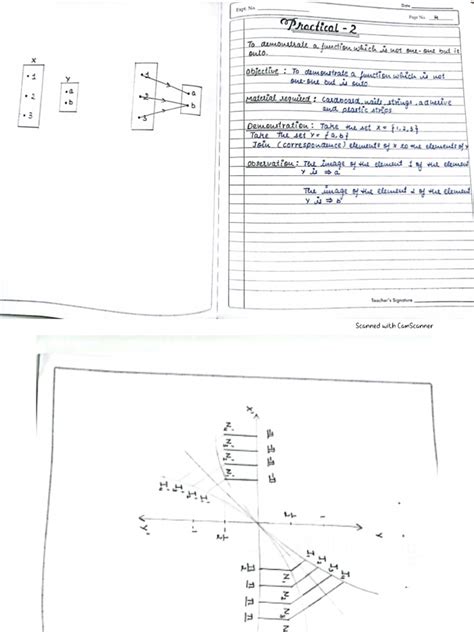 X
Y
• 1
• 2
• 3
• a
• b
1
2
3
a
b
Expt. No.
Date
Page No. 4
Practical - 2
To demonstrate a function which is not one-one but is
onto.
Objective : To demonstrate a function which is not
one-one but is onto.
Material required : Cardboard, nails, strings, adhesive
and plastic strips
Demonstration : Take the set X = {1, 2, 3}
Take the set Y = {a, b}
Join (correspondence) elements of X to the elements of Y
Observation : The image of the element 1 of the element
Y is ⇒ a
The image of the element 2 of the element
Y is ⇒ b
Teacher's Signature
Scanned with CamScanner
X'
Y'
Y
N1
N2
N3